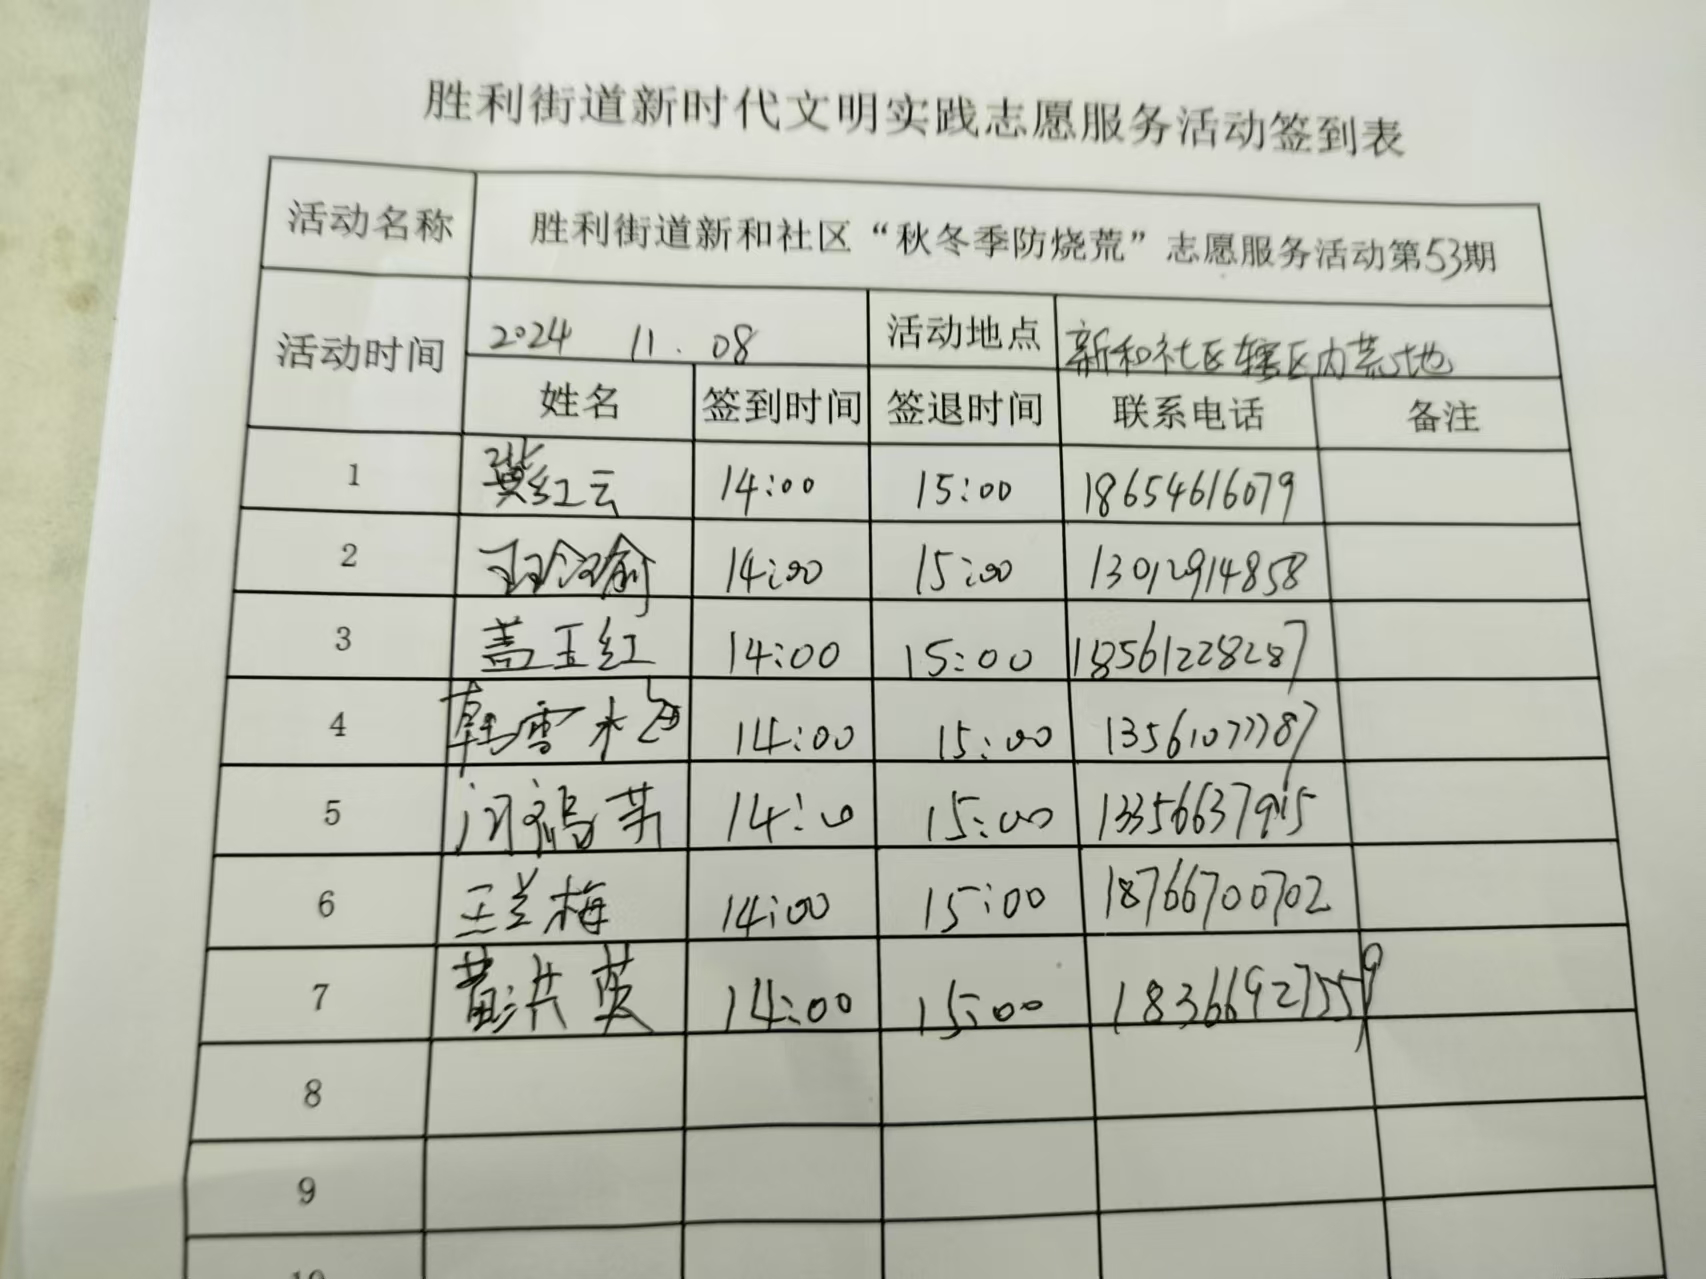 胜利街道新时代文明实践志愿服务活动签到表
活动名称 胜利街道新和社区“秋冬季防烧荒”志愿服务活动第53期
活动时间 2024 11.08 活动地点 新和社区辖区内荒地
姓名 签到时间 签退时间 联系电话 备注
1 冀红云 14:00 15:00 18654616079
2 14:00 15:00 13012914858
3 盖玉红 14:00 15:00 18561228287
4 韩雪 14:00 15:00 13561077787
5 14:00 15:00 13356637915
6 王兰梅 14:00 15:00 18766700702
7 黄洪英 14:00 15:00 18366927559
8
9
10